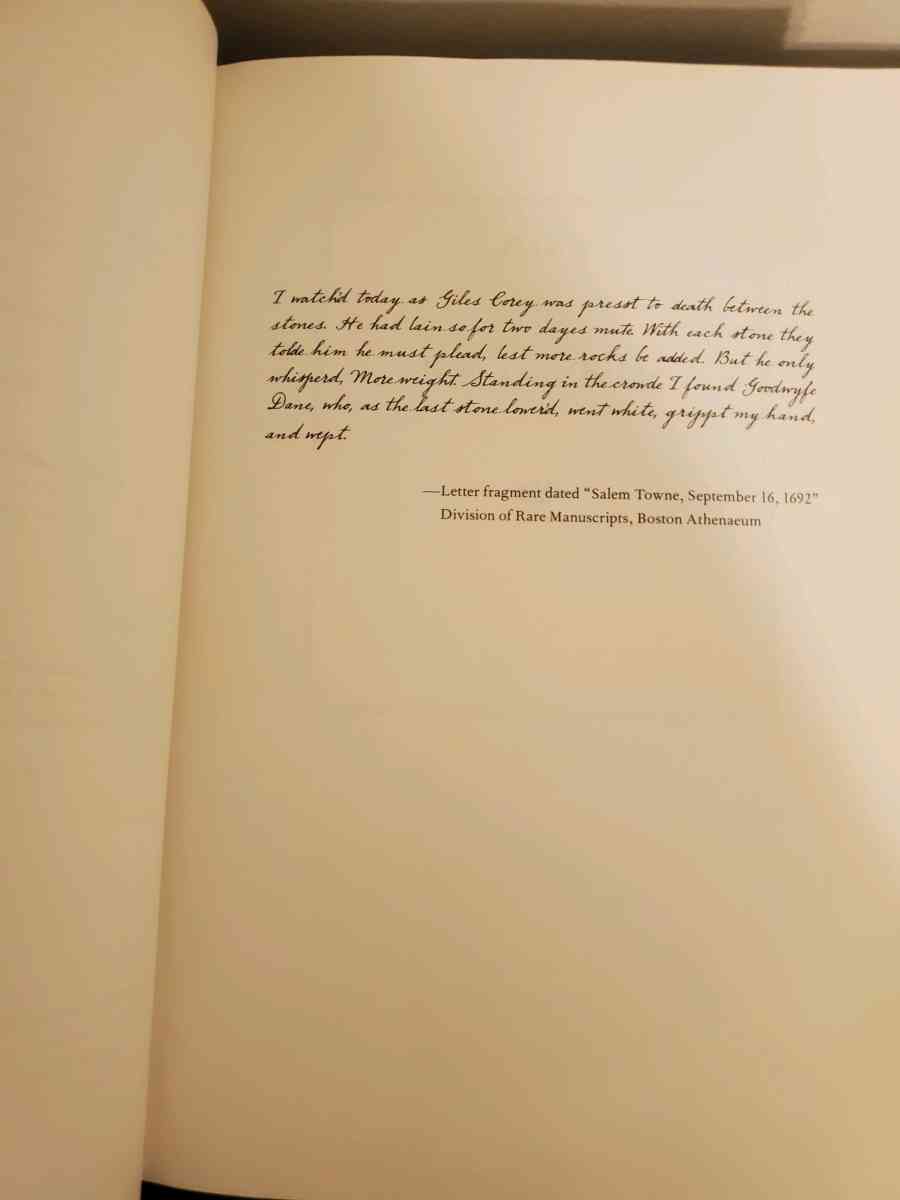 I watch'd today as Giles Corey was presst to death between the
stones. He had lain so for two dayes mute. With each stone they
tolde him he must plead, lest more rocks be added. But he only
whisperd, More weight. Standing in the crowde I found Goodwyfe
Dane, who, as the last stone lower'd, went white, grippt my hand,
and wept.
—Letter fragment dated "Salem Towne, September 16, 1692"
Division of Rare Manuscripts, Boston Athenaeum